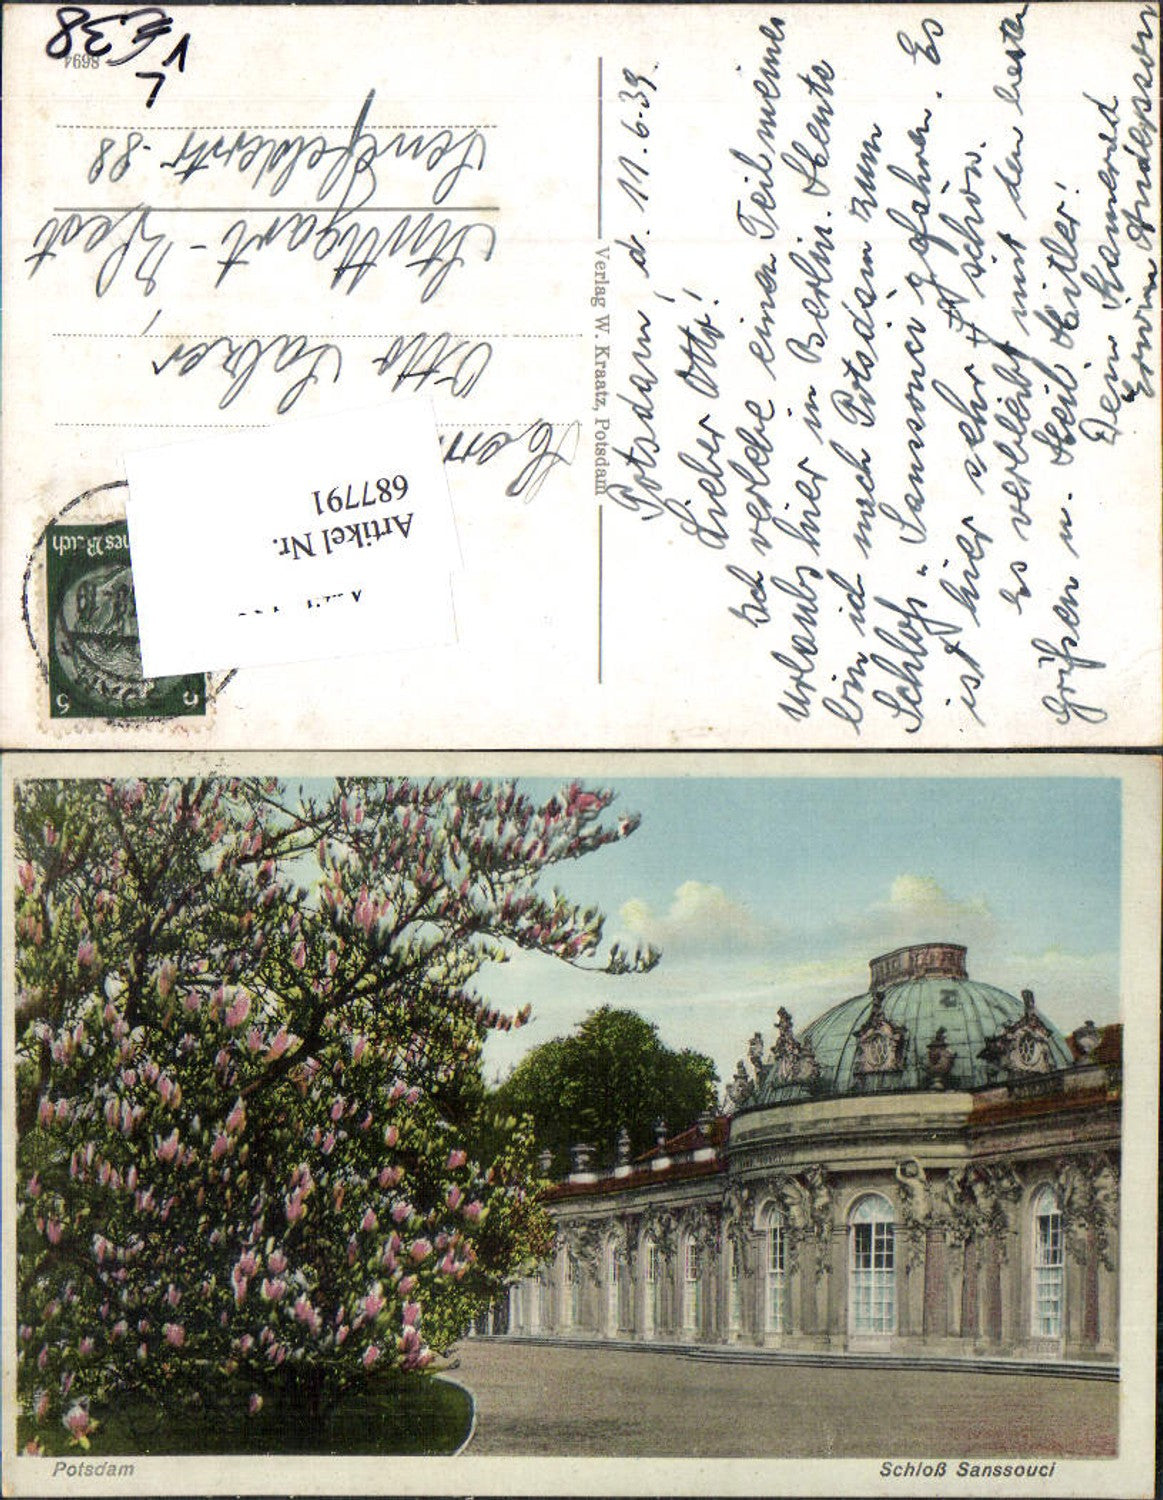 Potsdam, d. 11.6.39.
Lieber Otto!
Ich verlebe einen Teil meines
Urlaubs hier in Berlin. Heute
bin ich nach Potsdam zum
Schloß „Sanssouci gefahren. Es
ist hier sehr schön.
Es verbleibt mit den besten
Grüßen u. Heil Hitler!
Dein Kamerad
Erwin Andersson
Verlag W. Kraatz, Potsdam
Herrn
Otto
Stuttgart-West
Senefelderstr. 88
8694
L
V
€38
Artikel Nr.
687791
5
5
Potsdam
Schloß Sanssouci